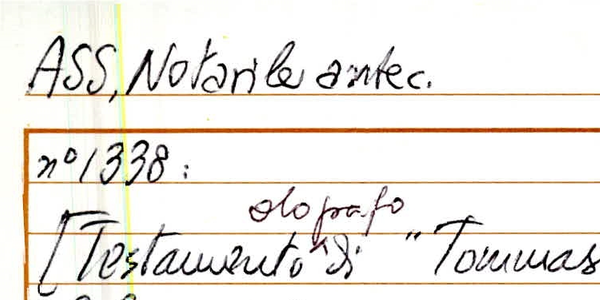 ASS, Notarile antec.
n° 1338:
olografo
[Testamento ^ di "Tommas